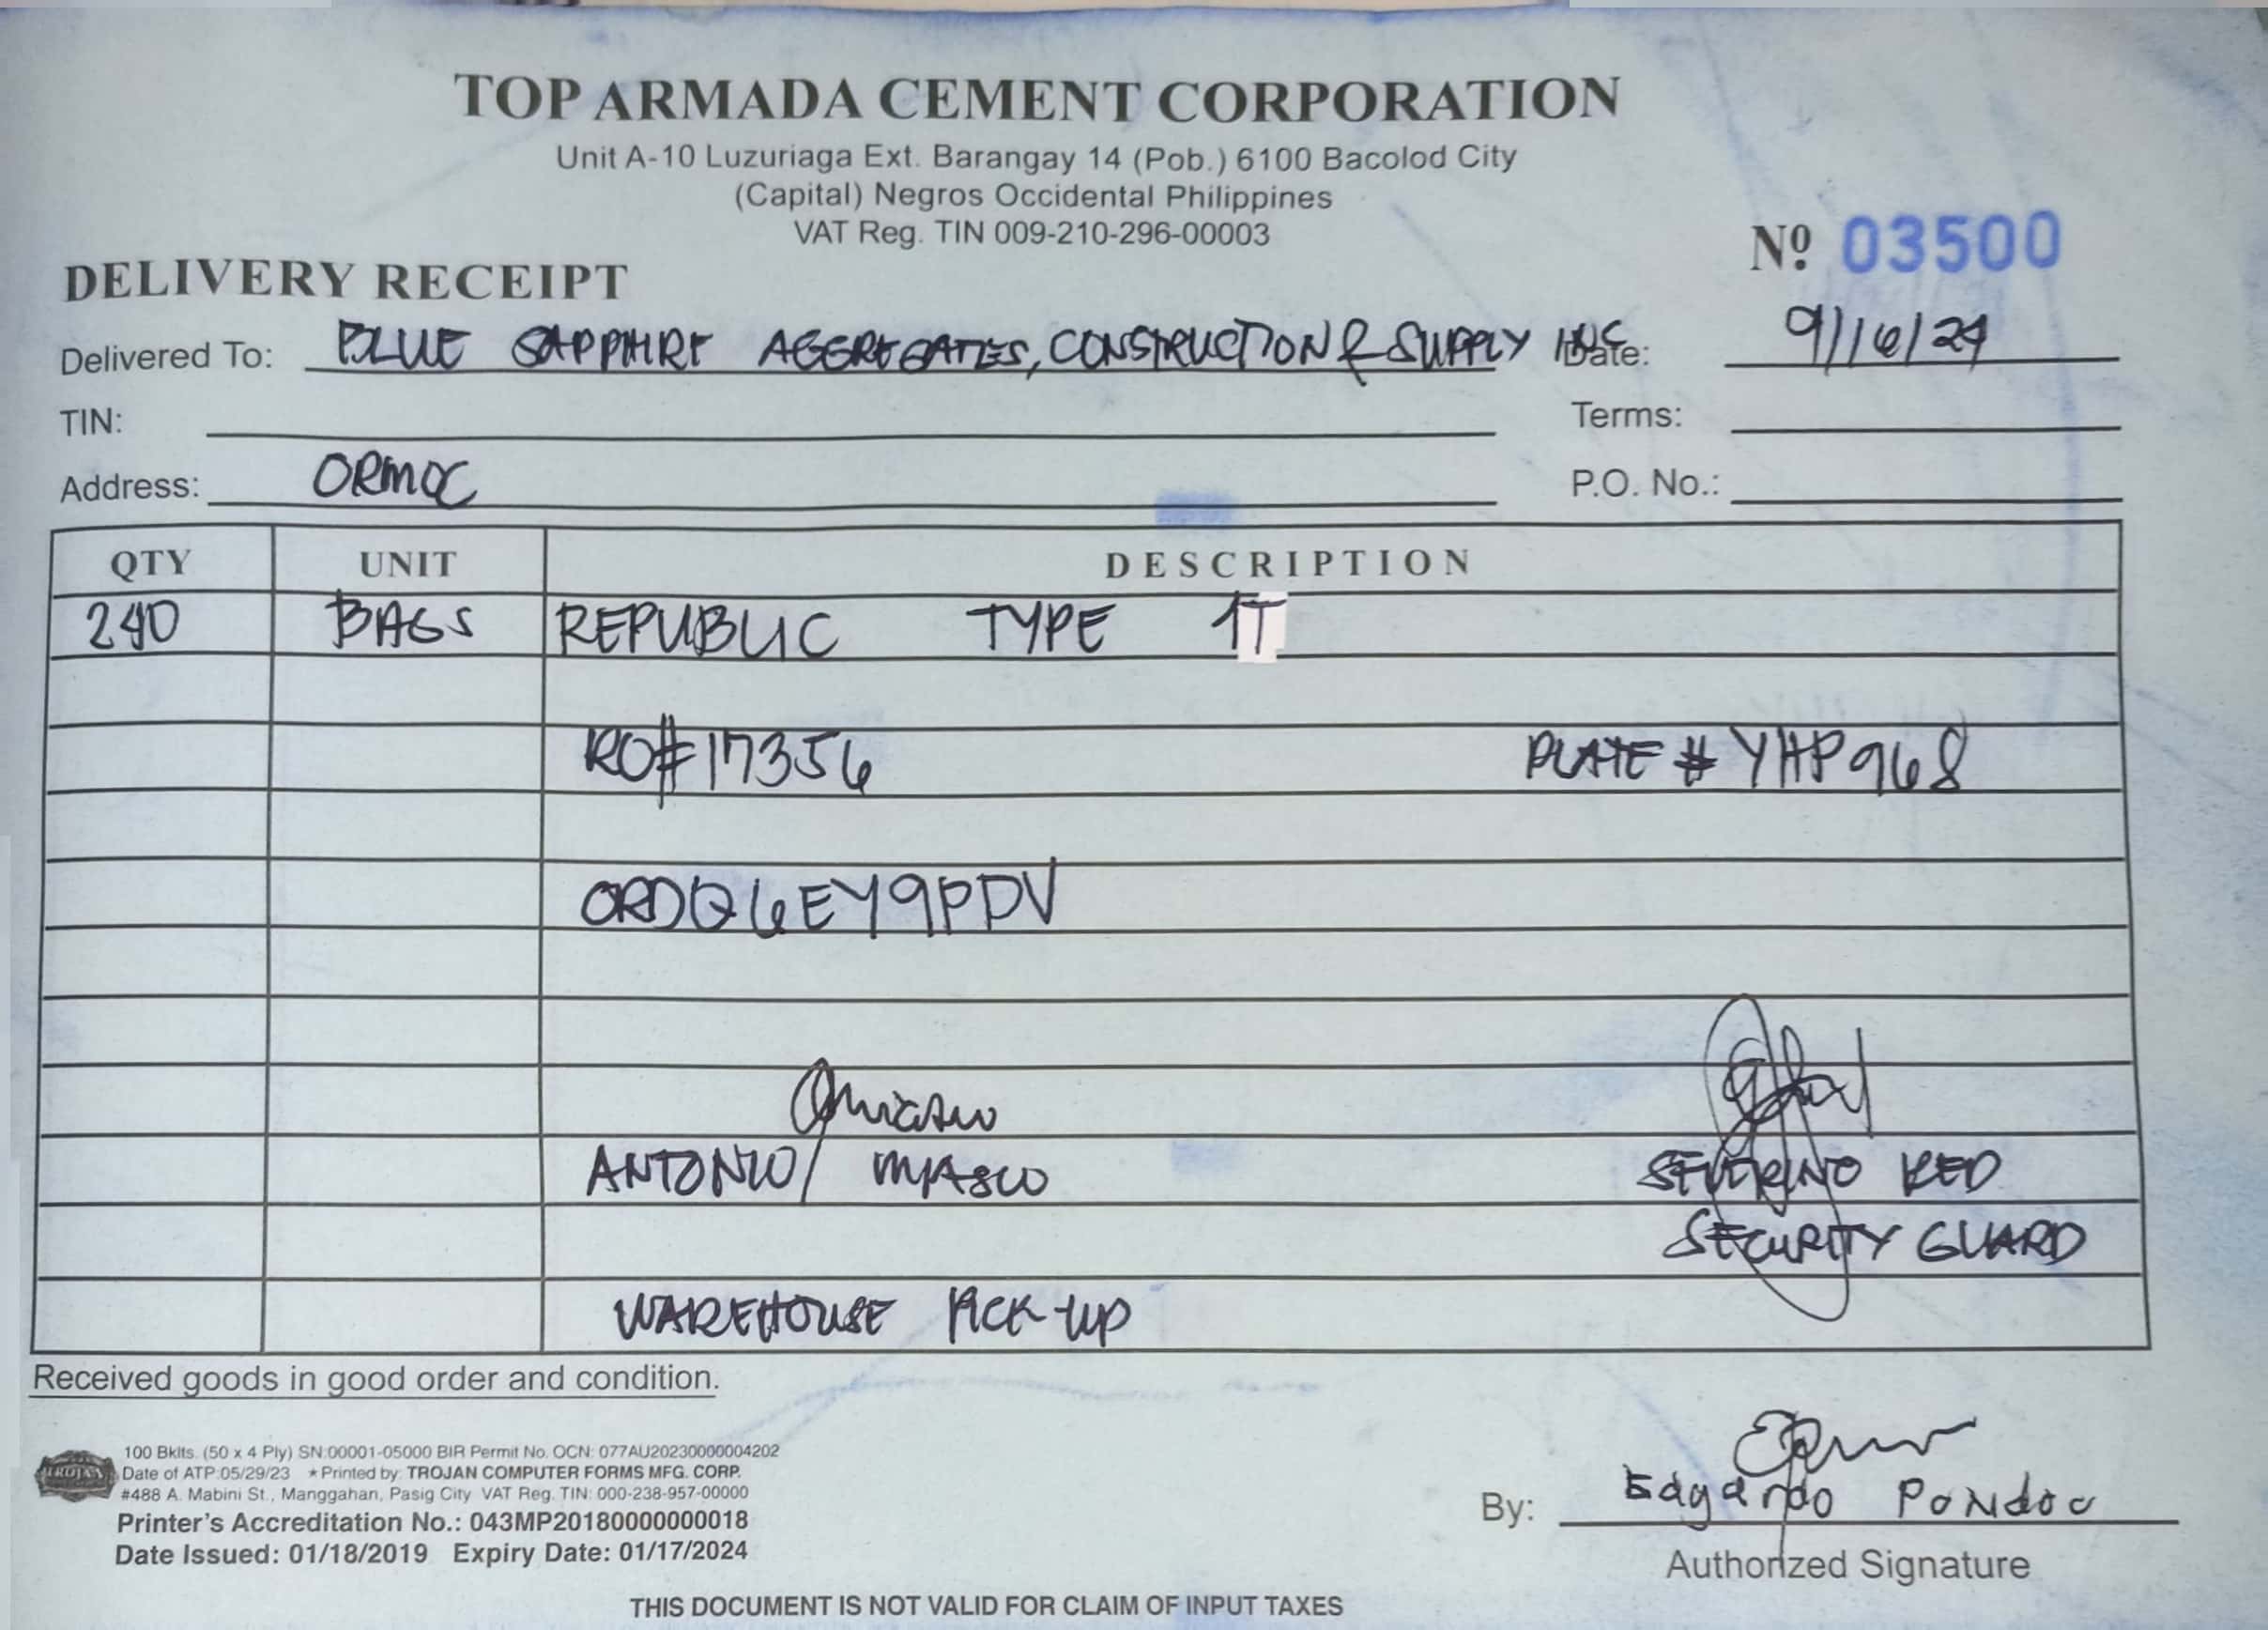 TOP ARMADA CEMENT CORPORATION
Unit A-10 Luzuriaga Ext. Barangay 14 (Pob.) 6100 Bacolod City
(Capital) Negros Occidental Philippines
VAT Reg. TIN 009-210-296-00003
Nº 03500
DELIVERY RECEIPT
Delivered To: BLUE SAPPHIRE AGGREGATES, CONSTRUCTION & SUPPLY INC Date: 9/16/24
TIN: Terms:
Address: ORMOC P.O. No.:
QTY UNIT DESCRIPTION
240 BAGS REPUBLIC TYPE 1T
RO#17356 PLATE # YHP968
ORDQ6EY9PDV
ANTONIO MIASCO SEVERINO RED
SECURITY GUARD
WAREHOUSE PICK-UP
Received goods in good order and condition.
100 Bklts. (50 x 4 Ply) SN:00001-05000 BIR Permit No. OCN: 077AU20230000004202
TROJAN Date of ATP:05/29/23 ★Printed by: TROJAN COMPUTER FORMS MFG. CORP.
#488 A. Mabini St., Manggahan, Pasig City VAT Reg. TIN: 000-238-957-00000
Printer's Accreditation No.: 043MP20180000000018
Date Issued: 01/18/2019 Expiry Date: 01/17/2024
By: Edgardo Pondoc
Authorized Signature
THIS DOCUMENT IS NOT VALID FOR CLAIM OF INPUT TAXES